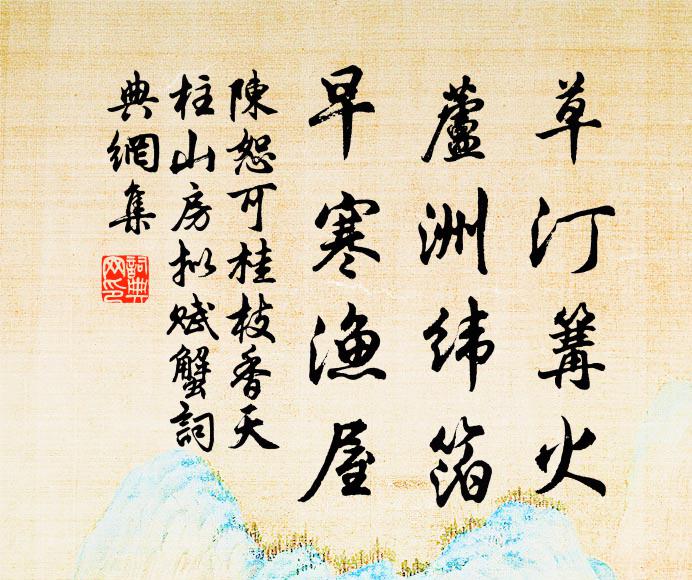 草汀篝火
蘆洲緯箔
早寒漁屋
陳恕可桂枝香天
柱山房拟赋蟹詞
典網集
詞典
网印